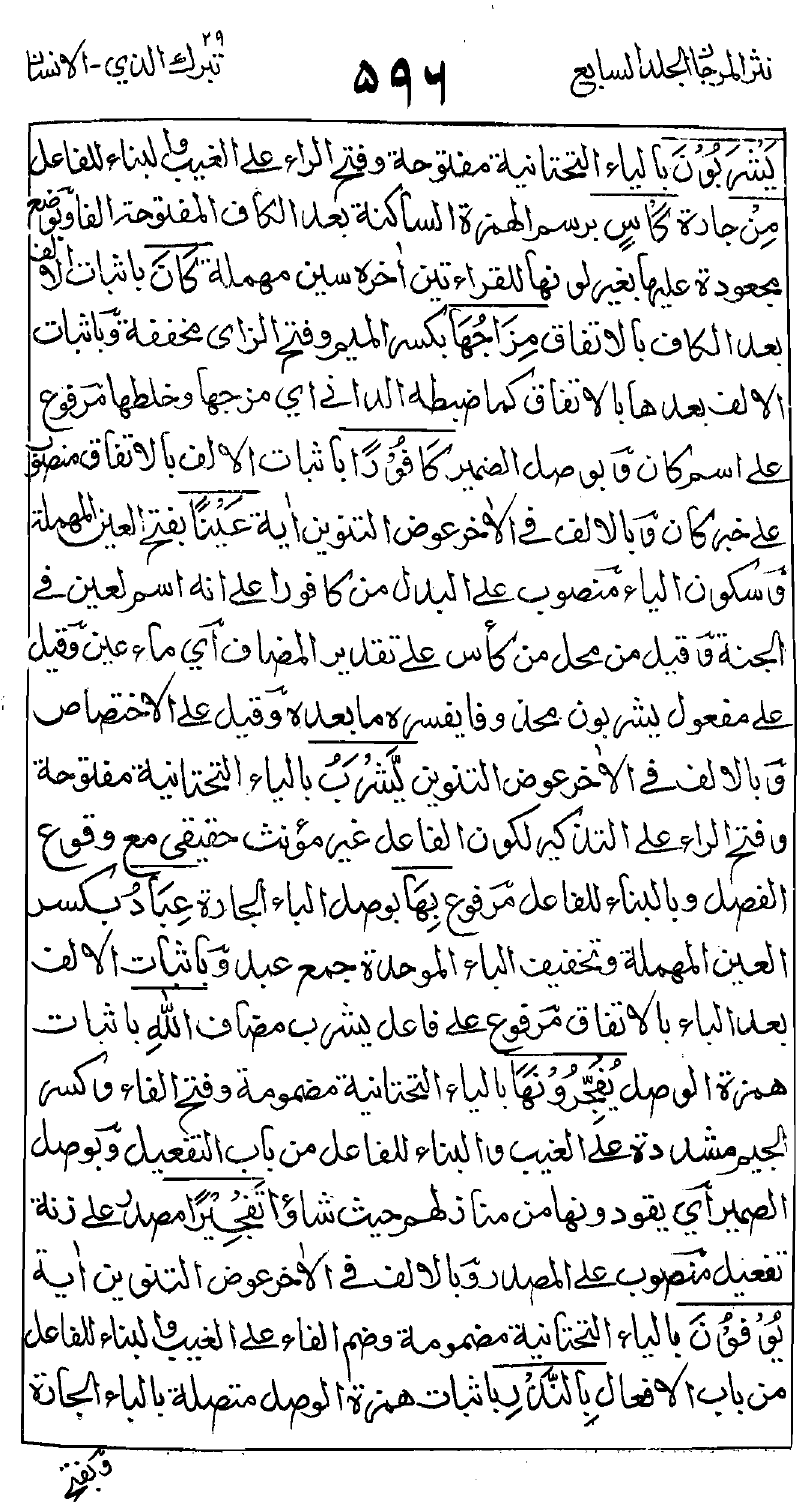 نثر المرجان الجلد السابع ٥٩٦ تبرك الذي ٢٩ - الانسان
يَشْرَبُوْنَ بالياء التحتانية مفتوحة وفتح الراء على الغيب والبناء للفاعل
مِنْ جارة كَاْسٍ برسم الهمزة الساكنة بعد الكاف المفتوحة الفا وتوضع
مجعودة عليها بغير لونها للقراءتين اٰخره سين مهملة كَانَ باثبات الالف
بعد الكاف بالاتفاق مِزَاجُهَا بكسر الميم وفتح الزاى مخففة وّباثبات
الالف بعدها بالاتفاق كما ضبطه الداني أي مزجها وخلطها مّرفوع
على اسم كان وّبوصل الضمير كَافُوْرًا باثبات الالف بالاتفاق منصوب
على خبر كان وّبالالف في الاٰخر عوض التنوين اٰية عَيْنًا بفتح العين المهملة
وّسكون الياء مّنصوب على البدل من كافورا على انه اسم لعين في
الجنة وّقيل من محل من كأس على تقدير المضاف أي ماء عين وّقيل
على مفعول يشربون محذوفا يفسره ما بعده وّقيل على الاختصاص
وّبالالف في الاٰخر عوض التنوين يَّشْرَبُ بالياء التحتانية مفتوحة
وفتح الراء على التذكير لكون الفاعل غير مؤنث حقيقي مع وقوع
الفصل وبالبناء للفاعل مّرفوع بِهَا بوصل الباء الجارة عِبَادُ بكسر
العين المهملة وتخفيف الباء الموحدة جمع عبد وّباثبات الالف
بعد الباء بالاتفاق مّرفوع على فاعل يشرب مضاف اللّٰهِ باثبات
همزة الوصل يُفَجِّرُوْنَهَا بالياء التحتانية مضمومة وفتح الفاء وكسر
الجيم مشددة على الغيب والبناء للفاعل من باب التفعيل وّبوصل
الضمير أي يقودونها من منازلهم حيث شاؤا تَفْجِيْرًا مصدر على زنة
تفعيل مّنصوب على المصدر وّبالالف في الاٰخر عوض التنوين اٰية
يُوْفُوْنَ بالياء التحتانية مضمومة وضم الفاء على الغيب والبناء للفاعل
من باب الافعال بِالنَّذْرِ باثبات همزة الوصل متصلة بالباء الجارة
وّبفتح